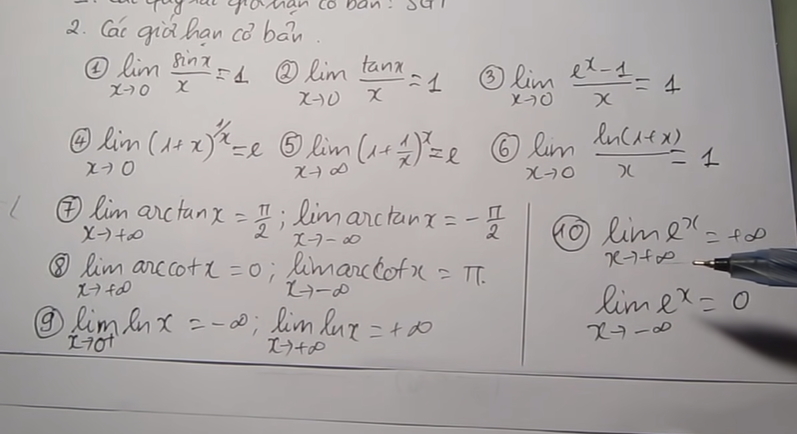 2. Các giới hạn cơ bản.
① lim x→0 sinx/x = 1 ② lim x→0 tanx/x = 1 ③ lim x→0 (e^x − 1)/x = 1
④ lim x→0 (1+x)^(1/x) = e ⑤ lim x→∞ (1+1/x)^x = e ⑥ lim x→0 ln(1+x)/x = 1
⑦ lim x→+∞ arctanx = π/2; lim x→−∞ arctanx = −π/2
⑧ lim x→+∞ arccotx = 0; lim x→−∞ arccotx = π.
⑨ lim x→0+ lnx = −∞; lim x→+∞ lnx = +∞
⑩ lim x→+∞ e^x = +∞
lim x→−∞ e^x = 0